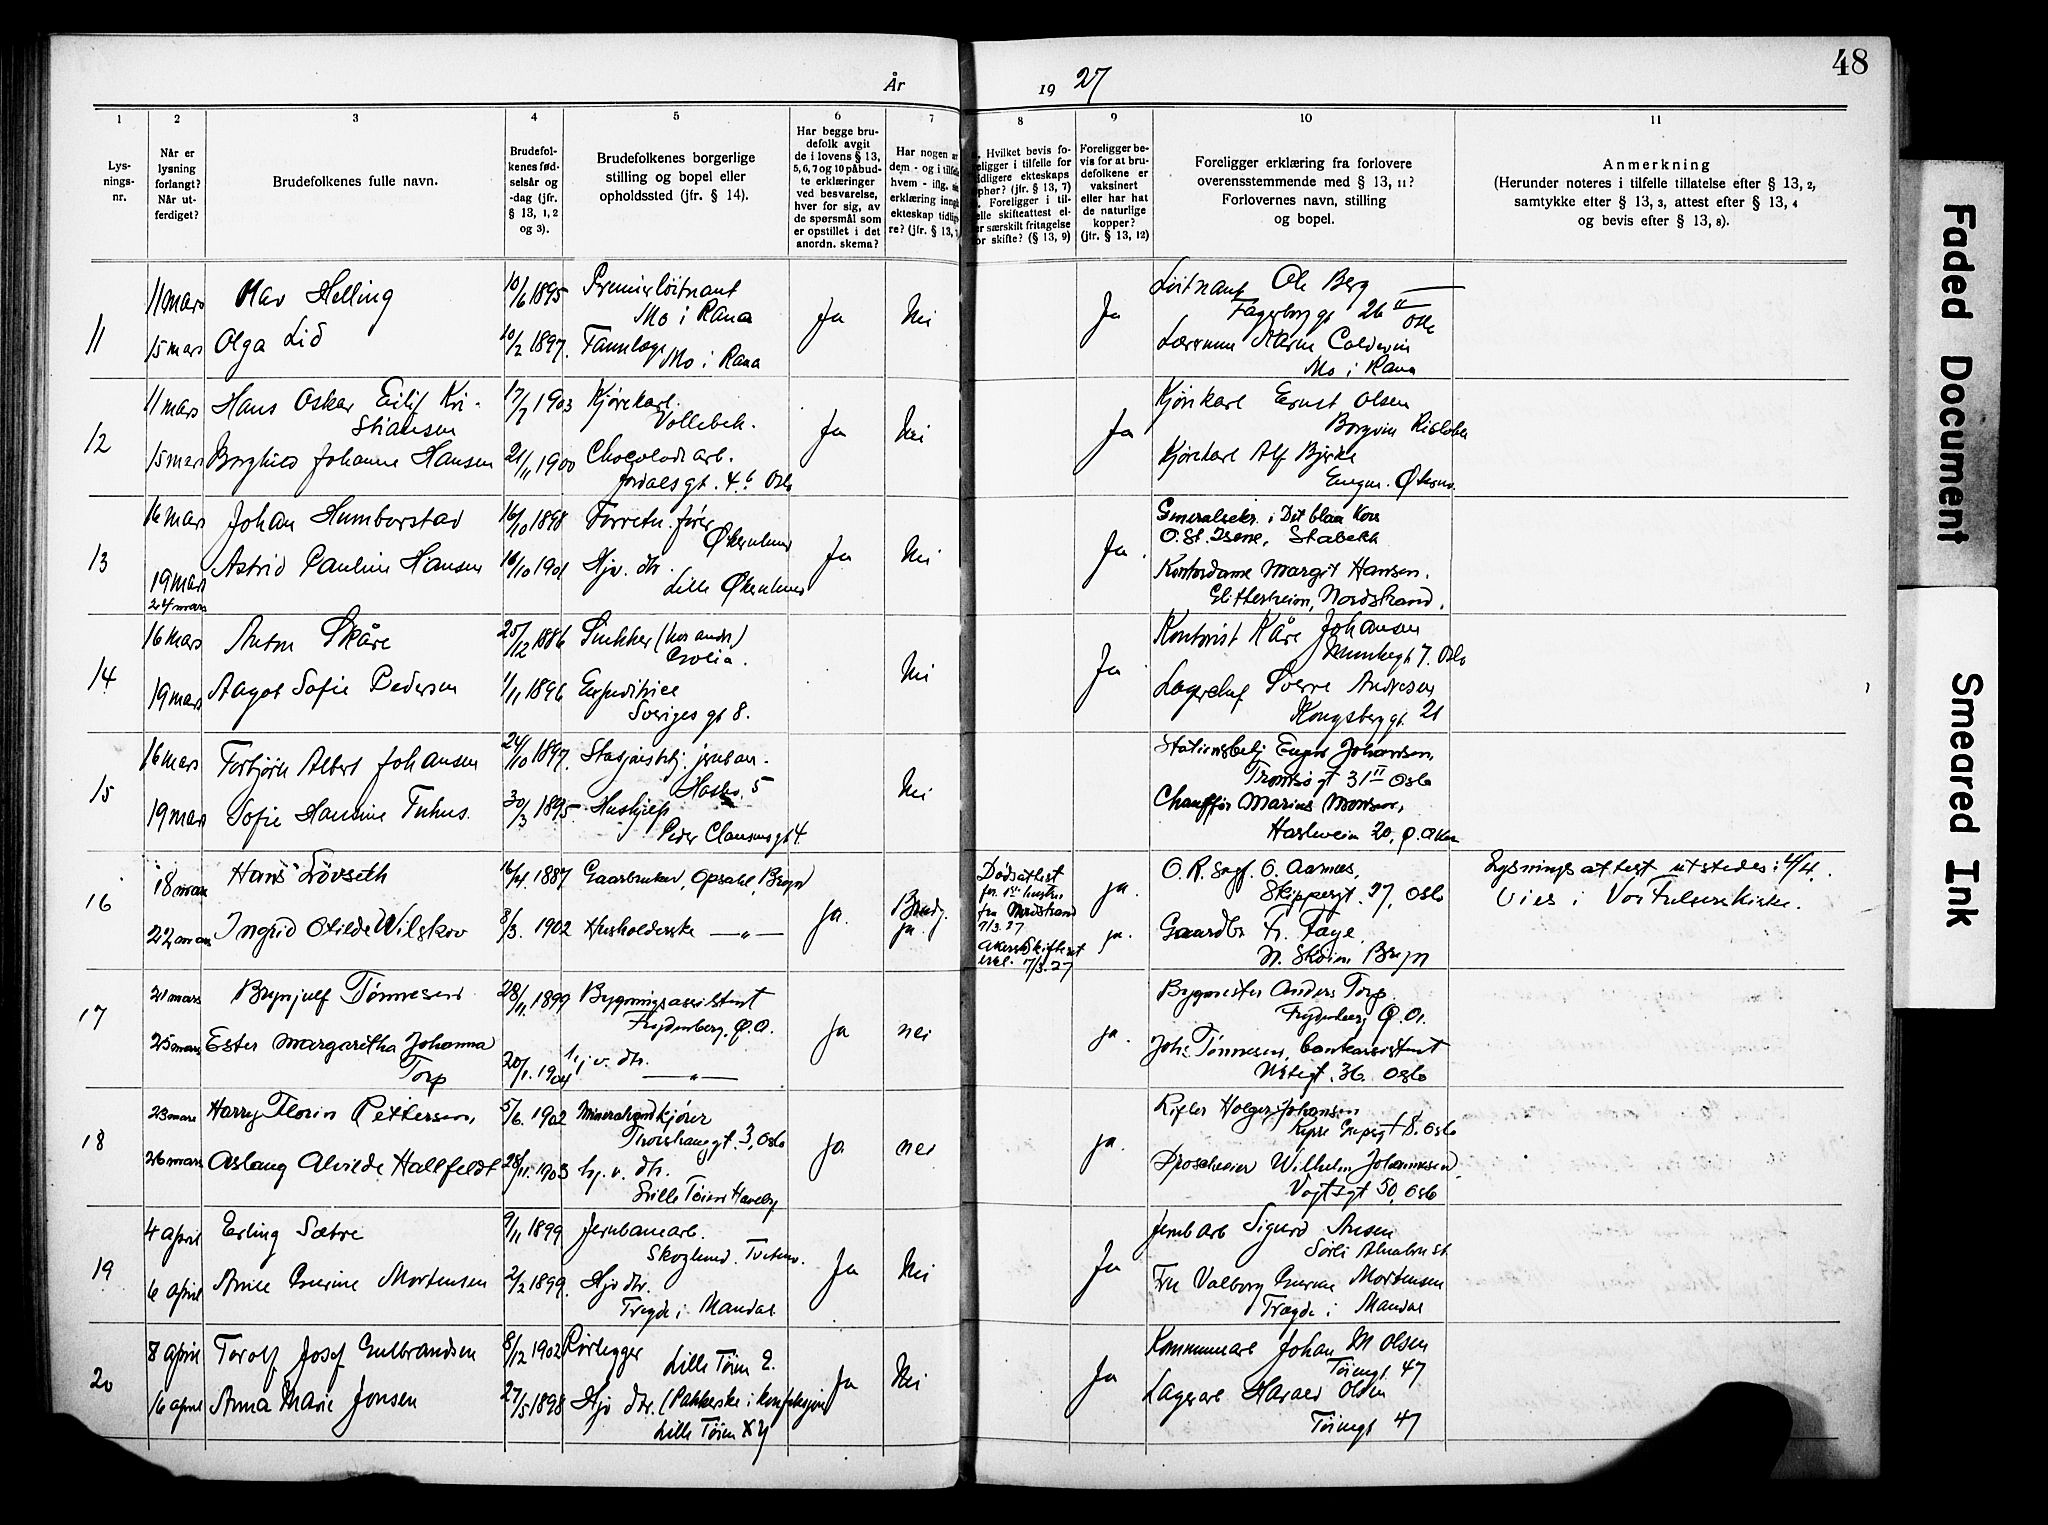 48
År 1927
1 2 3 4 5 6 7 8 9 10 11
Lys-
nings-
nr.
Når er
lysning
forlangt?
Når ut-
ferdiget?
Brudefolkenes fulle navn.
Brudefol-
kenes fød-
selsår og
-dag (jfr.
§ 13, 1, 2
og 3).
Brudefolkenes borgerlige
stilling og bopel eller
opholdssted (jfr. § 14).
Har begge bru-
defolk avgit
de i lovens § 13,
5, 6, 7 og 10 påbud-
te erklæringer
ved besvarelse,
hver for sig, av
de spørsmål som
er opstillet i det
anordn. skema?
Har nogen a
dem - og i tilfelle
hvem - iflg. sin
erklæring inng
ekteskap tidlig
re? (jfr. § 13,
Hvilket bevis fo-
religger i tilfelle for
tidligere ekteskaps
opher? (jfr. § 13, 7)
Foreligger i til-
felle skifteattest el-
er særskilt fritagelse
for skifte? (§ 13, 9)
Foreligger be-
vis for at bru-
defolkene er
vaksinert
eller har hat
de naturlige
kopper?
(jfr. § 13, 12)
Foreligger erklæring fra forlovere
overensstemmende med § 13, 11?
Forlovernes navn, stilling
og bopel.
Anmerkning
(Herunder noteres i tilfelle tillatelse efter § 13, 2,
samtykke efter § 13, 3, attest efter § 13, 4
og bevis efter § 13, 8).
11
11 mars Olav Helling 10/6 1895 Premierløitnant
Mo i Rana
15 mars Olga Lid 10/2 1897. Tannlæge
Mo i Rana
Ja Nei Ja
Løitnant Ole Berg
Fagerborggt 26 II Oslo
Mo i Rana
12
11 mars Hans Oskar Eilif Kri-
stiansen
17/7 1903 Kjørekarl.
Vollebek.
15 mars Borghild Johanne Hansen 21/11 1900 Chocoladearb.
Jordalsgt. 4 b Oslo
Ja Nei Ja
Kjørekarl Ernst Olsen
Kjørekarl Alf Bjerke
13
16 mars Johan Humborstad 16/10 1898 Forretn. fører
Økernlund
19 mars
24 mars
Astrid Pauline Hansen 16/10 1901 Hjv. dtr.
Lille Økernlund
Ja Nei Ja.
Generalsekr. i Det blaa Kors
O. St. Isene, Stabekk
Kontordame Margit Hansen.
Glitterheim, Nordstrand.
14
16 mars Anton Skåre 25/12 1886 Snekker (hos andre)
19 mars Aagot Sofie Pedersen 11/11 1896 Expeditrice
Sverigesgt 8.
Nei Ja
Kontorist Kåre Johansen
Munkegt 7. Oslo
Lagerchef Sverre Andresen
Kongsberggt. 21
15
16 mars Torbjørn Albert Johansen 24/10 1897. Stasjonsbetj. jernban.
Haslev. 5
19 mars Sofie Hansine Tuhus. 30/3 1895. Hushjelp
Peder Clausensgt 4.
Nei
Stationsbetj Eugen Johansen,
Tromsøgt 31 II Oslo
Chauffør Marius Monsen,
Hasleveien 20, Ø. Aker
16
18 mars Hans Løvseth 16/4 1887 Gaardbruker, Opsahl, Bryn
22 mars Ingrid Otilde Wilskov 8/3. 1902 Husholderske —"—
Ja. Brudg.
ja.
Dødsattest
for 1ste hustru
fra Nordstrand
7/3.27
Akers Skifteret
erkl. 7/3.27
ja.
ja.
O. R. Sagf. O. Aarnes,
Skippergt. 27, Oslo
Gaardbr Fr. Faye,
N. Skøien Bryn
Lysningsattest utstedes: 4/4.
Vies i Vor Frelsers Kirke.
17
21 mars Brynjulf Tønnesen 28/11. 1899 Bygningsassistent
Frydenberg, Ø. A.
25 mars Ester Margaritha Johanna
Torp
20/1. 1904 Hj. v. dtr.
—"—
Ja nei ja.
Bygmester Anders Torp
Frydenberg Ø. A.
Johs Tønnesen, bankassistent
36. Oslo
18
23 mars Harry Florin Pettersen, 5/6. 1902 Mineralvandkjører
3, Oslo
26 mars Aslaug Alvilde Hallfeldt 28/11. 1903 hj. v. dtr.
Lille Tøien Haveby
Ja nei ja.
Holger Johansen
8. Oslo
Droscheeier Wilhelm Johannesen,
Vogtsgt 50, Oslo
19
4 april Erling Sætre 9/11 1899 Jernbanearb.
Skoglund. Tveten.
6 april Anne Gurine Mortensen 2/2 1899. Hjv dtr.
Tregde i Mandal
Ja Nei Ja
Jernb arb Sigurd Ansen
Sørli Alnabru st.
Fru Valborg Gurine Mortensen
Trægde i Mandal
20
8 april Torolf Josef Gulbrandsen 8/12 1902 Rørlegger
Lille Tøien 2.
16 april Anna Marie Jonsen 27/5 1898 Hjv dtr. (Pakkerske i konfeksjon
Lille Tøien
Ja Nei Ja
Kommunearb Johan M Olsen
Tøiengt 47
Lagerarb Harald Olsen
Tøiengt 47
Faded Document
Smeared Ink